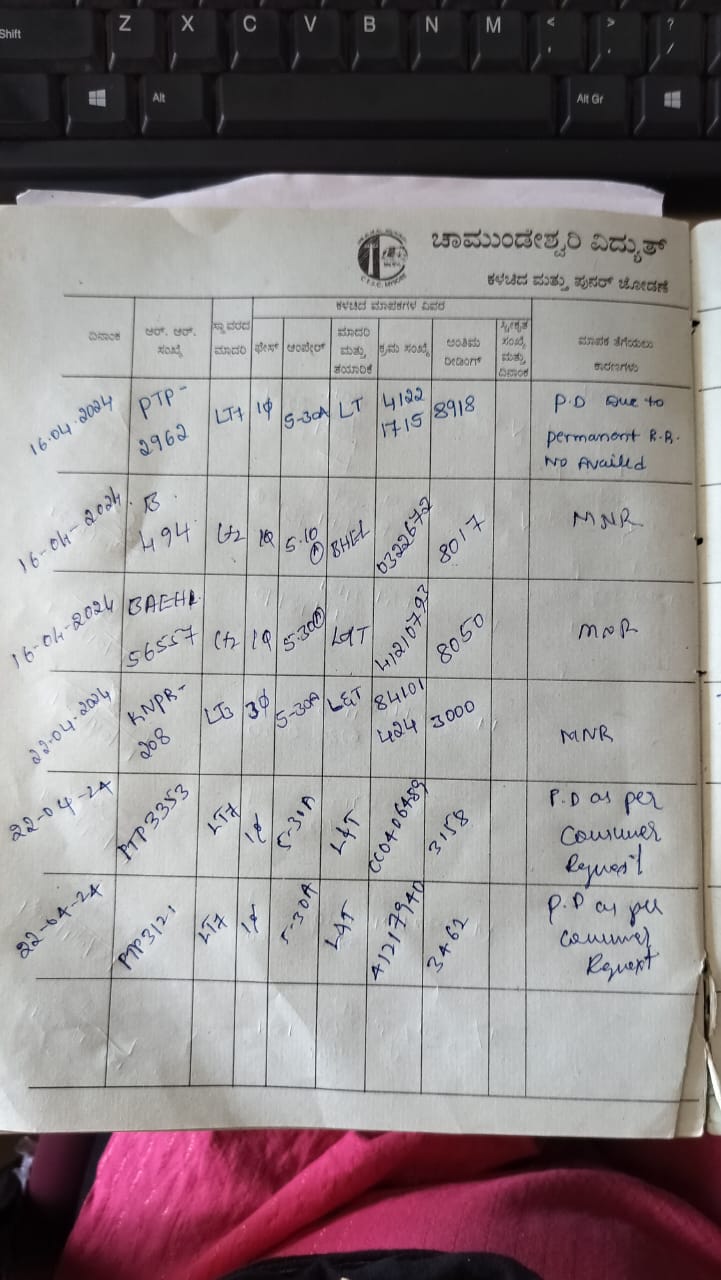 Shift
Z X C V B N M < > ?
, . /
Alt
Alt Gr
ಚಾಮುಂಡೇಶ್ವರಿ ವಿದ್ಯುತ್
ಕಳಚಿದ ಮತ್ತು ಪುನರ್ ಜೋಡಣೆ
ಕಳಚಿದ ಮಾಪಕಗಳ ವಿವರ
ದಿನಾಂಕ
ಆರ್. ಆರ್. ಸಂಖ್ಯೆ
ಸ್ಥಾವರದ ಮಾದರಿ
ಫೇಸ್
ಆಂಪೇರ್
ಮಾದರಿ ಮತ್ತು ತಯಾರಿಕೆ
ಕ್ರಮ ಸಂಖ್ಯೆ
ಅಂತಿಮ ರೀಡಿಂಗ್
ಸ್ವೀಕೃತ ಸಂಖ್ಯೆ ಮತ್ತು ದಿನಾಂಕ
ಮಾಪಕ ತೆಗೆಯಲು ಕಾರಣಗಳು
16.04.2024 PTP-2962 LT7 1Φ 5-30A LT 41221715 8918 P.D Due to
permanent R.R.
No Availed
16-04-2024 B 494 Lt2 1Φ 5-10A BHEL 0322672 8017 MNR
16-04-2024 BAEHL 56557 Lt2 1Φ 5-30A L&T 41210793 8050 MNR
22-04-2024 KNPR-208 LT3 3Φ 5-30A L&T 84101424 3000 MNR
22-04-24 PTP3353 LT7 1Φ 5-30A L&T CC0406489 3158 P.D as per
Consumer
Request
22-04-24 PTP3121 LT7 1Φ 5-30A L&T 41217940 3462 P.D as per
Consumer
Request